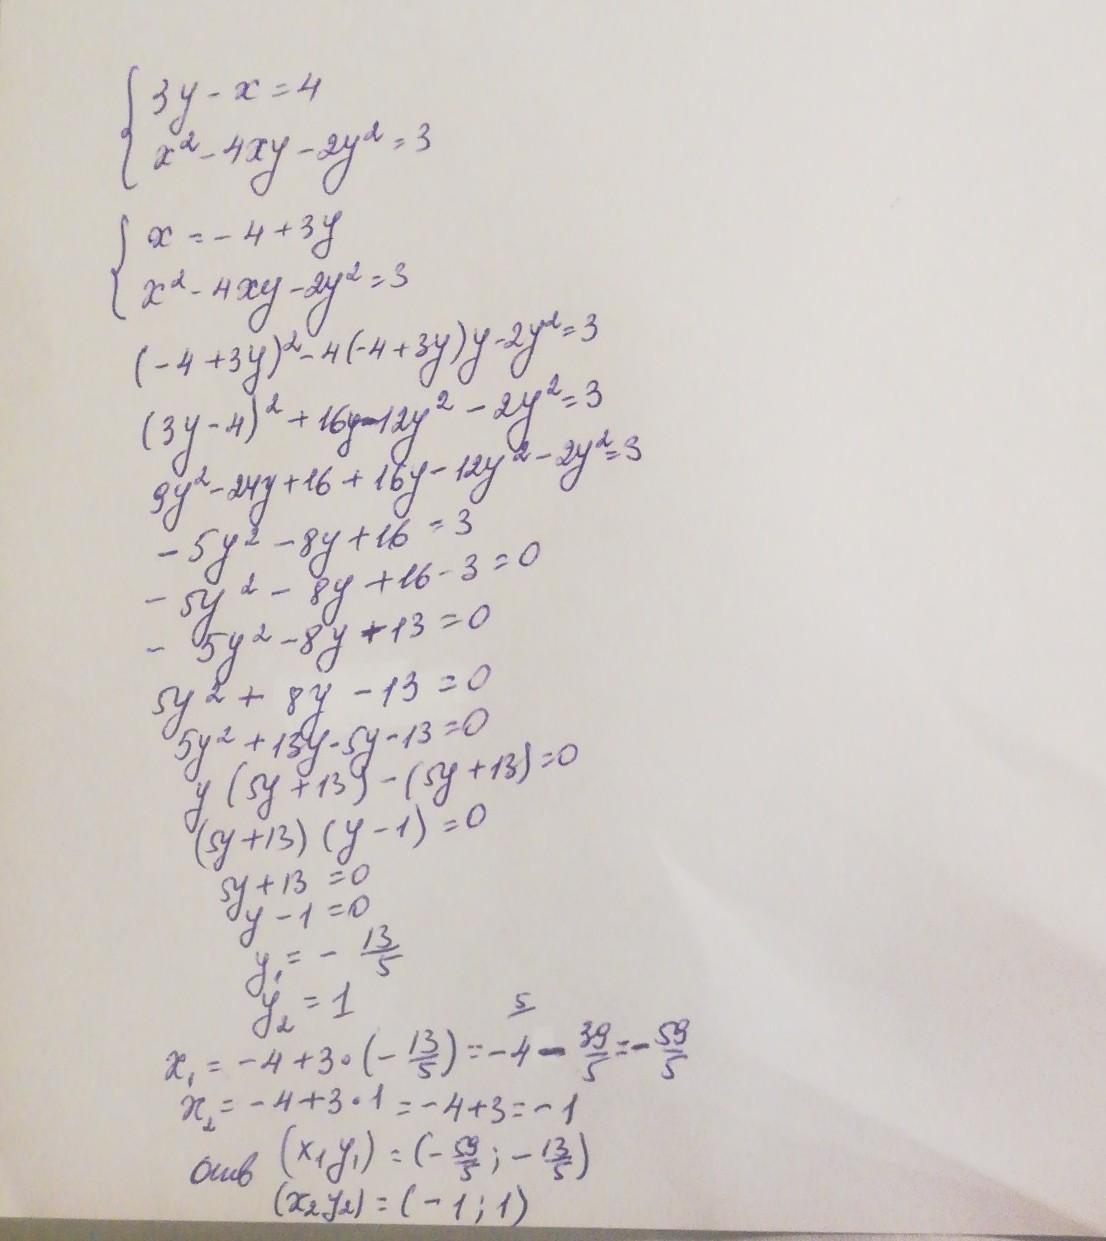 { 3y - x = 4
x² - 4xy - 2y² = 3
{ x = - 4 + 3y
x² - 4xy - 2y² = 3
(-4 + 3y)² - 4(-4 + 3y)y - 2y² = 3
(3y - 4)² + 16y - 12y² - 2y² = 3
9y² - 24y + 16 + 16y - 12y² - 2y² = 3
- 5y² - 8y + 16 = 3
- 5y² - 8y + 16 - 3 = 0
- 5y² - 8y + 13 = 0
5y² + 8y - 13 = 0
5y² + 13y - 5y - 13 = 0
y (5y + 13) - (5y + 13) = 0
(5y + 13) (y - 1) = 0
5y + 13 = 0
y - 1 = 0
y₁ = - 13/5
y₂ = 1
5
x₁ = -4 + 3 · (- 13/5) = -4 - 39/5 = - 59/5
x₂ = -4 + 3 · 1 = -4 + 3 = -1
Отв (x₁y₁) = (- 59/5 ; - 13/5)
(x₂y₂) = (-1 ; 1)